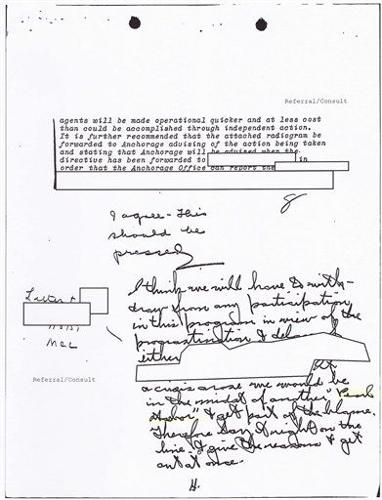 Referral/Consult
agents will be made operational quicker and at less cost
than could be accomplished through independent action.
It is further recommended that the attached radiogram be
forwarded to Anchorage advising of the action being taken
and stating that Anchorage will be advised when the
directive has been forwarded to in
order that the Anchorage Office can report the
I agree - this
should be
pressed
Letter to
Mcc
I think we will have to with-
draw from any participation
in this program in view of the
procrastination &
either
Referral/Consult
If
a crisis arose we would be
in the midst of another "Pearl
Harbor" & get part of the blame.
Therefore say it right on the
line & give the reasons & get
out at once.
H.